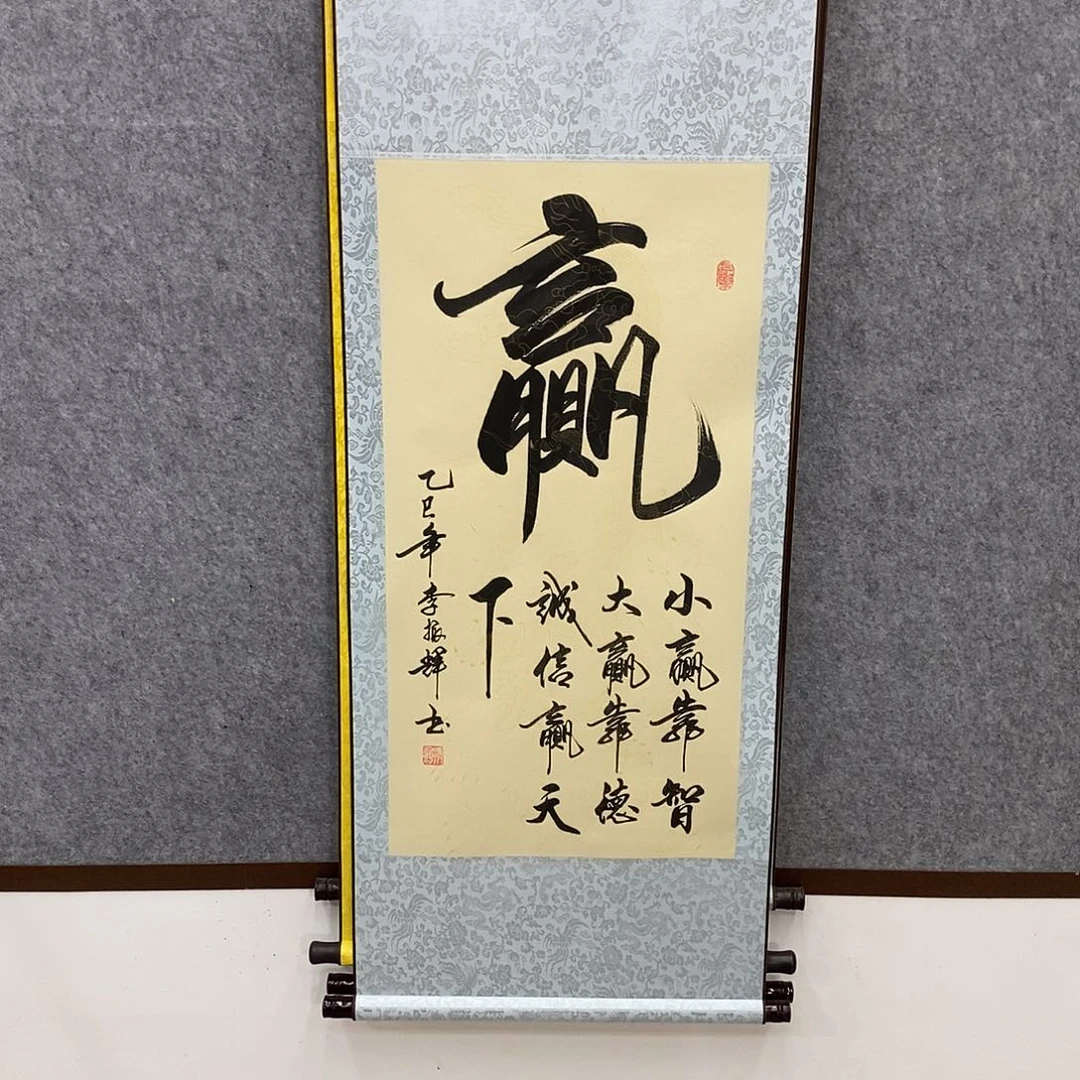 赢
小赢靠智
大赢靠德
誠信赢天
下
乙巳年 李振輝 书